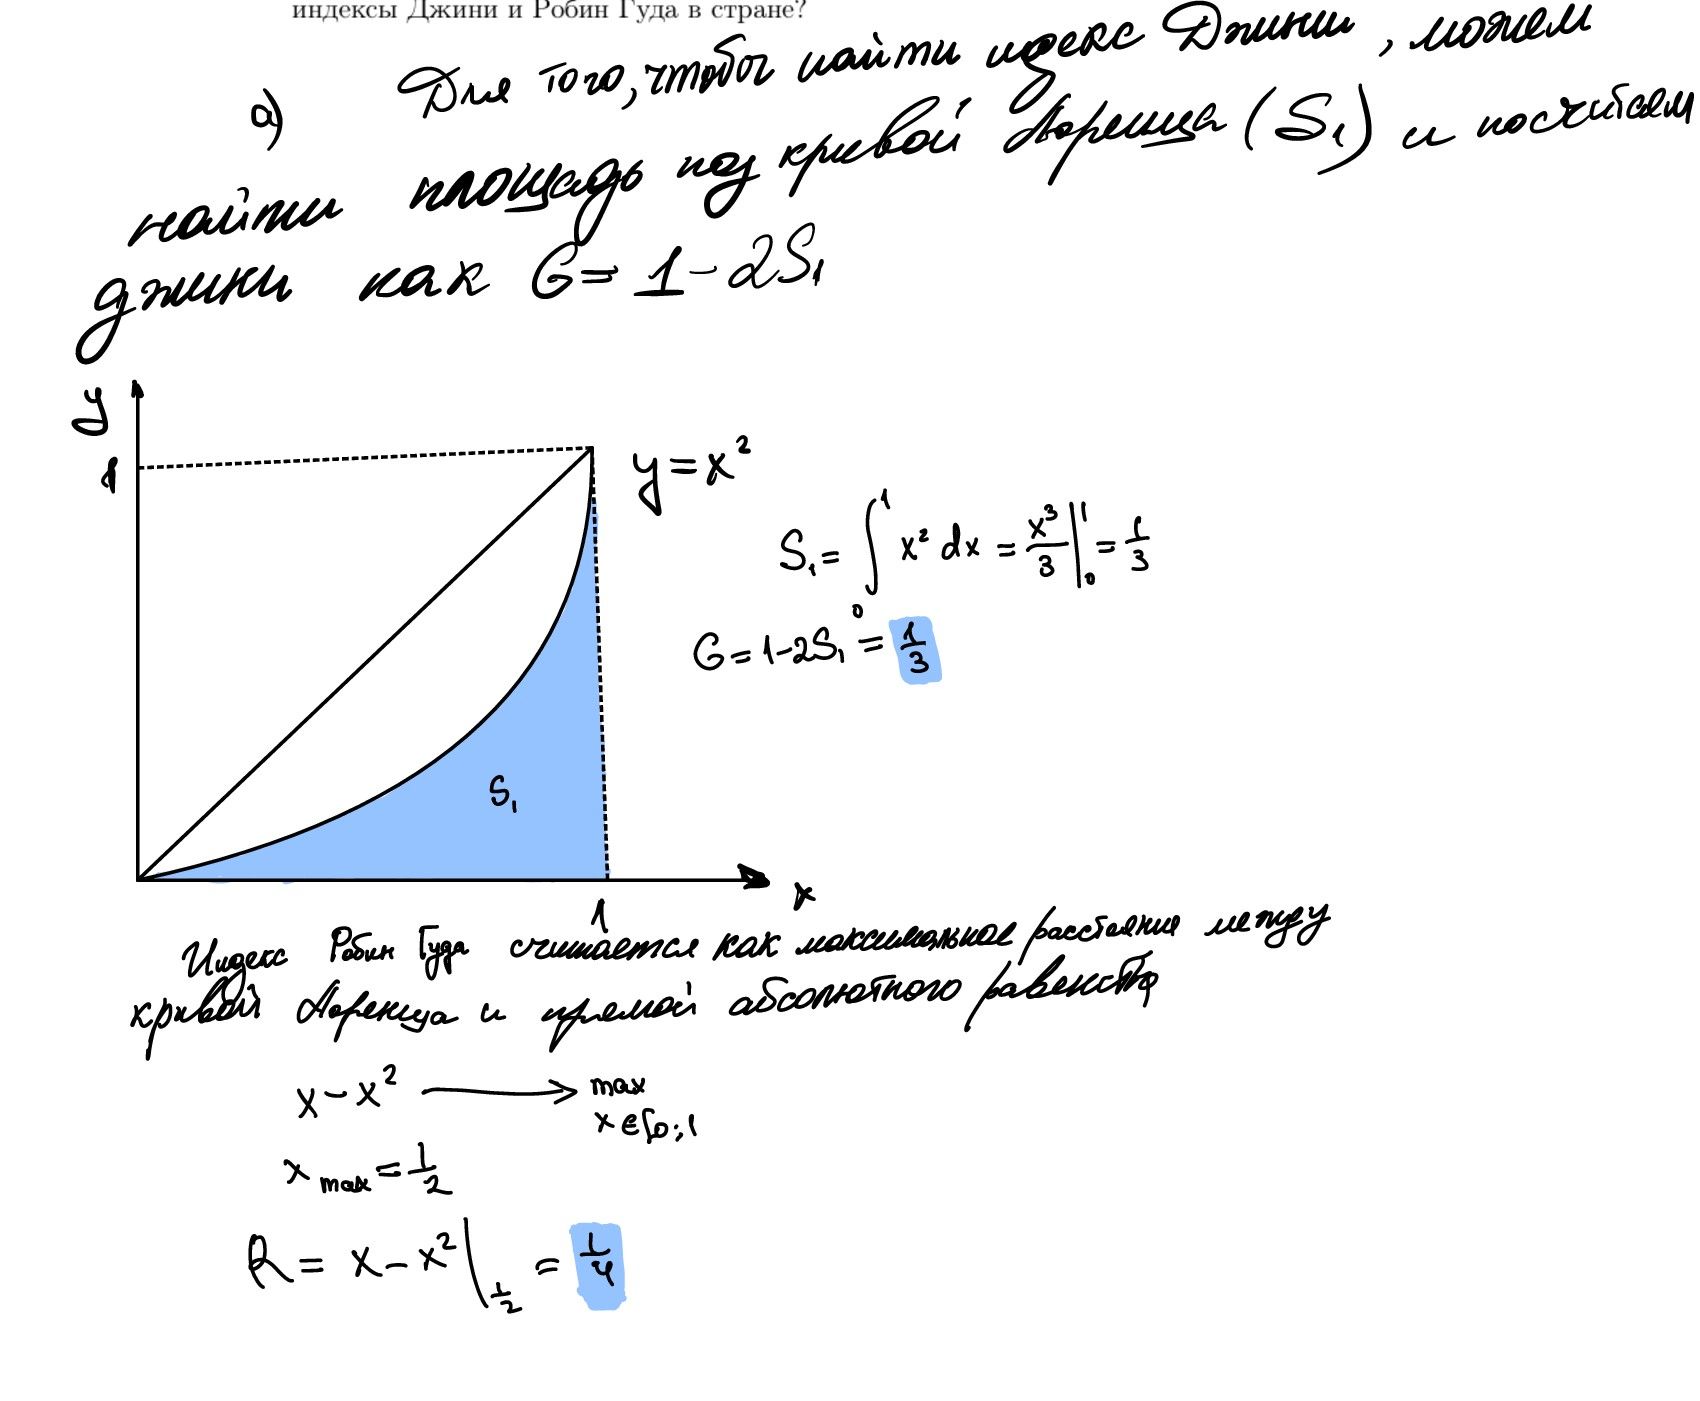 индексы Джини и Робин Гуда в стране?
а) Для того, чтобы найти индекс Джини, можем
найти площадь под кривой Лоренца (S₁) и посчитаем
джини как G = 1 - 2S₁
y
1
y = x²
S₁ = ∫₀¹ x² dx = x³/3 |₀¹ = 1/3
G = 1 - 2S₁ = 1/3
S₁
x
1
Индекс Робин Гуда считается как максимальное расстояние между
кривой Лоренца и прямой абсолютного равенства
x - x² → max
x ∈ [0; 1
x max = 1/2
R = x - x² |₁/₂ = 1/4